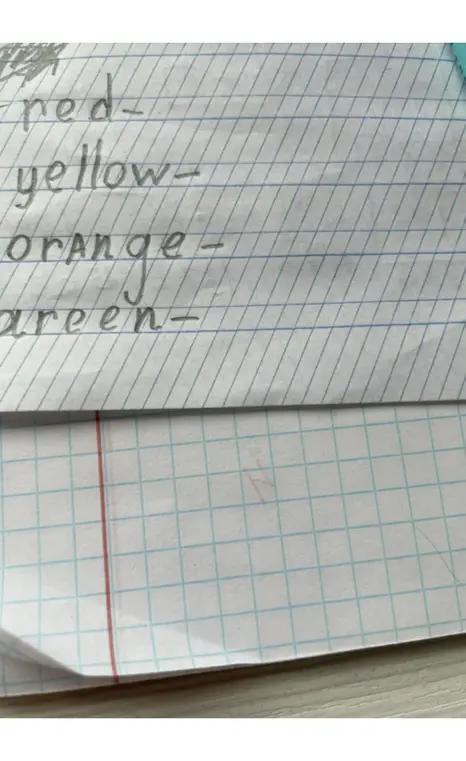 -red-
yellow-
orAnge-
areen-